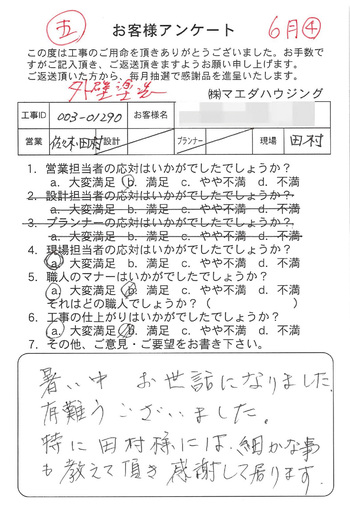 五
お客様アンケート
6月④
この度は工事のご用命を頂きありがとうございました。お手数で
すがご記入頂き、ご返送頂きますようお願い申し上げます。
ご返送頂いた方から、毎月抽選で感謝品を進呈いたします。
外壁塗装
㈱マエダハウジング
工事ID 003-01290 お客様名
営業 佐々木・田村 設計 プランナー 現場 田村
1. 営業担当者の応対はいかがでしたでしょうか？
a. 大変満足 b. 満足 c. やや不満 d. 不満
2. 設計担当者の応対はいかがでしたでしょうか？
a. 大変満足 b. 満足 c. やや不満 d. 不満
3. プランナーの応対はいかがでしたでしょうか？
a. 大変満足 b. 満足 c. やや不満 d. 不満
4. 現場担当者の応対はいかがでしたでしょうか？
a. 大変満足 b. 満足 c. やや不満 d. 不満
5. 職人のマナーはいかがでしたでしょうか？
a. 大変満足 b. 満足 c. やや不満 d. 不満
それはどの職人でしょうか？（ ）
6. 工事の仕上がりはいかがでしたでしょうか？
a. 大変満足 b. 満足 c. やや不満 d. 不満
7. その他、ご意見・ご要望をお書き下さい。
暑い中 お世話になりました。
有難うございました。
特に田村様には、細かな事
も教えて頂き感謝して居ります。